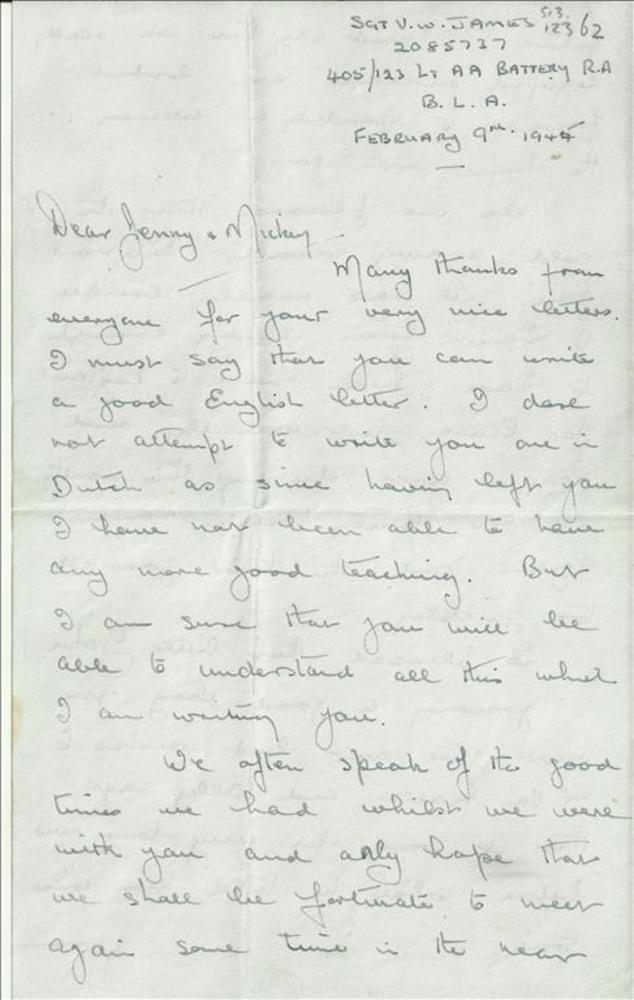 SGT V. W. JAMES 513 123/62
2085737
405/123 LT AA BATTERY R.A
B. L. A.
FEBRUARY 9th. 1945
Dear Jenny & Mickey
Many thanks from
everyone for your very nice letters.
I must say that you can write
a good English letter. I dare
not attempt to write you one in
Dutch as since having left you
I have not been able to have
any more good teaching. But
I am sure that you will be
able to understand all this what
I am writing you.
We often speak of the good
times we had whilst we were
with you and only hope that
we shall be fortunate to meet
again some time in the near